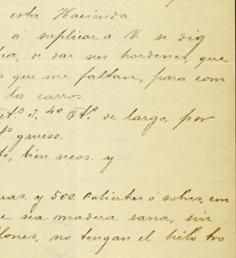 esta Hacienda
á suplicar á V. se dig
de dar sus hordenes, que
que me faltan, para com
los carros.
de largo, por
grueso.
bien secos. y
y 500 Cubiertas ó sobres, em
sea madera sana, sin
no tengan el hilo tro